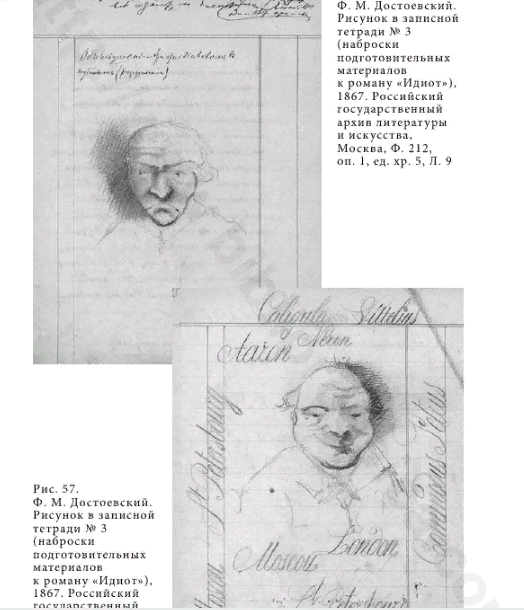 Ф. М. Достоевский.
Рисунок в записной
тетради № 3
(наброски
подготовительных
материалов
к роману «Идиот»),
1867. Российский
государственный
архив литературы
и искусства,
Москва, Ф. 212,
оп. 1, ед. хр. 5, Л. 9
Caligula Vittelius
Aaron
St Petersbourg
Moscou London
St Petersbourg
Рис. 57.
Ф. М. Достоевский.
Рисунок в записной
тетради № 3
(наброски
подготовительных
материалов
к роману «Идиот»),
1867. Российский
государственный